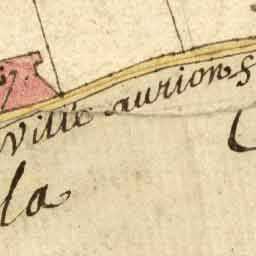 Ville aurions
la